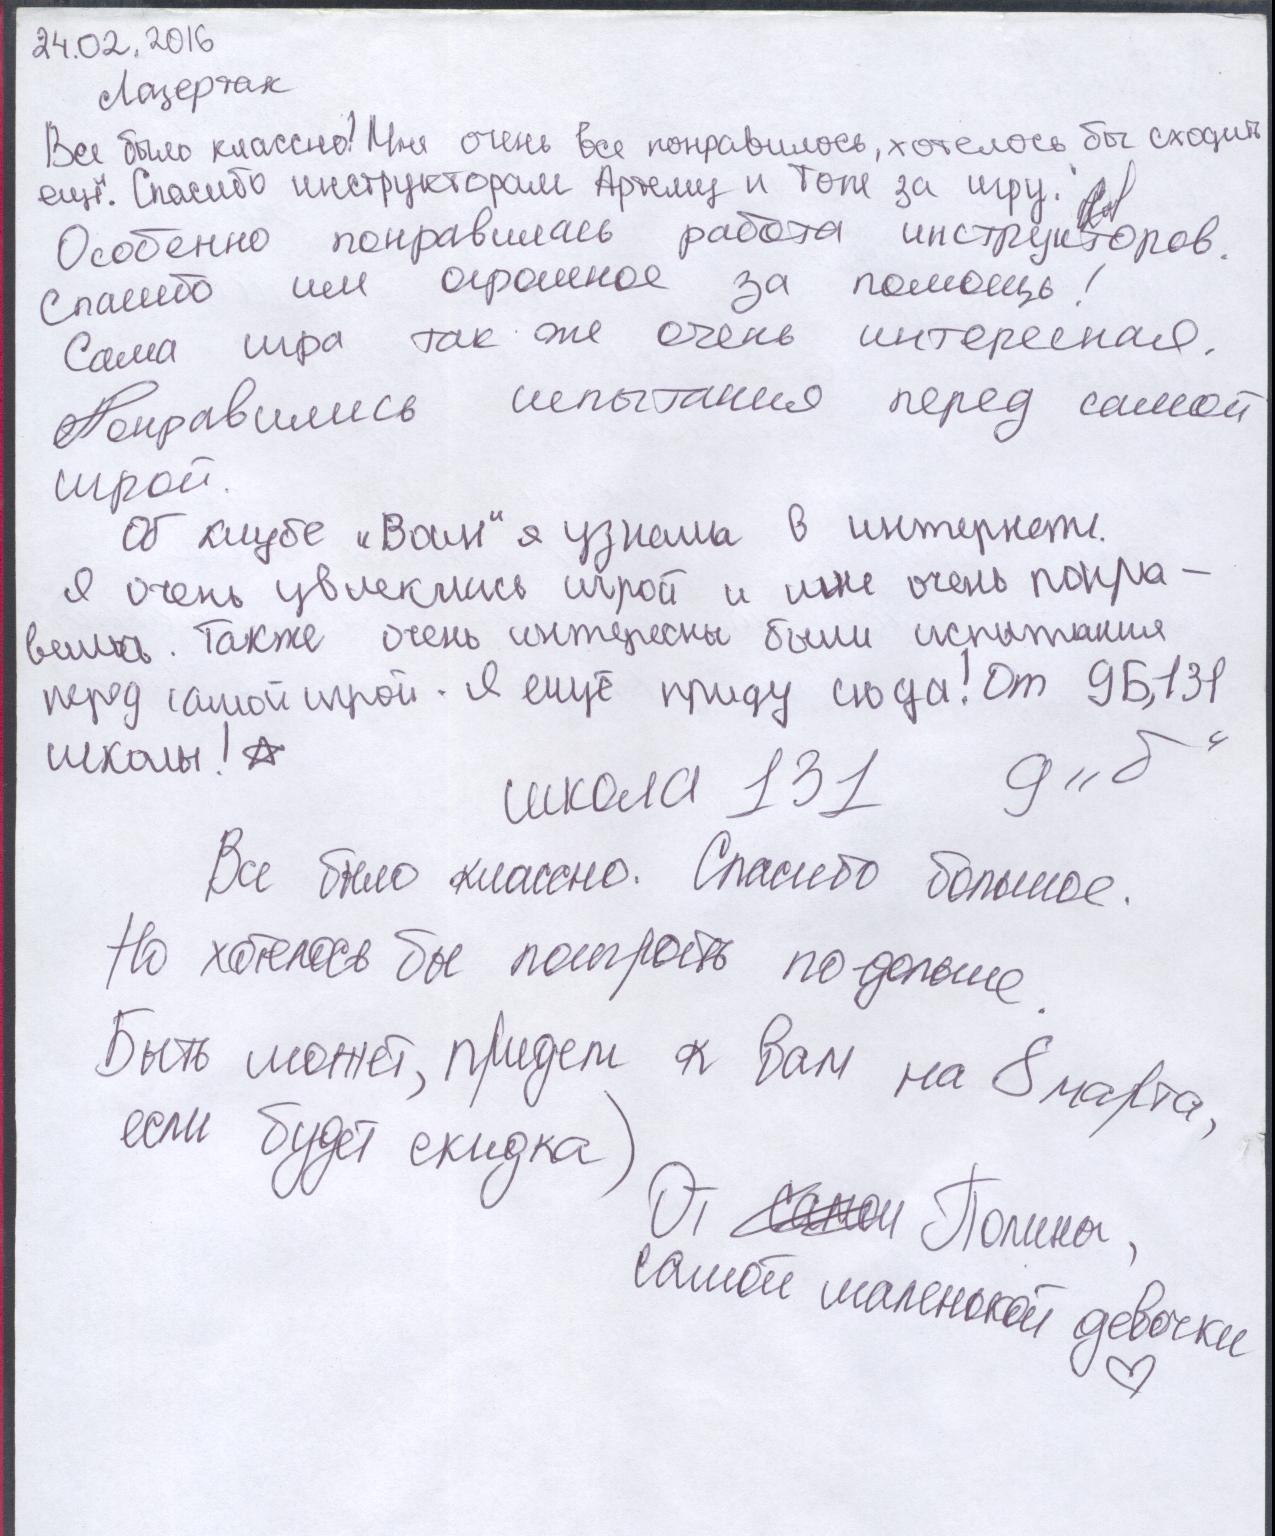 24.02.2016
Лазертак
Все было классно! Мне очень все понравилось, хотелось бы сходить
ещё. Спасибо инструкторам Артему и Тоне за игру.
Особенно понравилась работа инструкторов.
Спасибо им огромное за помощь!
Сама игра так же очень интересная.
Понравились испытания перед самой
игрой.
Об клубе „Воин“ я узнала в интернете.
Я очень увлеклись игрой и мне очень понра-
велись. Также очень интересны были испытания
перед самой игрой. Я ещё приду сюда! От 9Б,131
школы!
школа 131 9 „б“
Все было классно. Спасибо большое.
Но хотелось бы поиграть по дольше.
Быть может, придем к вам на 8 марта,
если будет скидка)
От самой Полины,
самой маленькой девочки